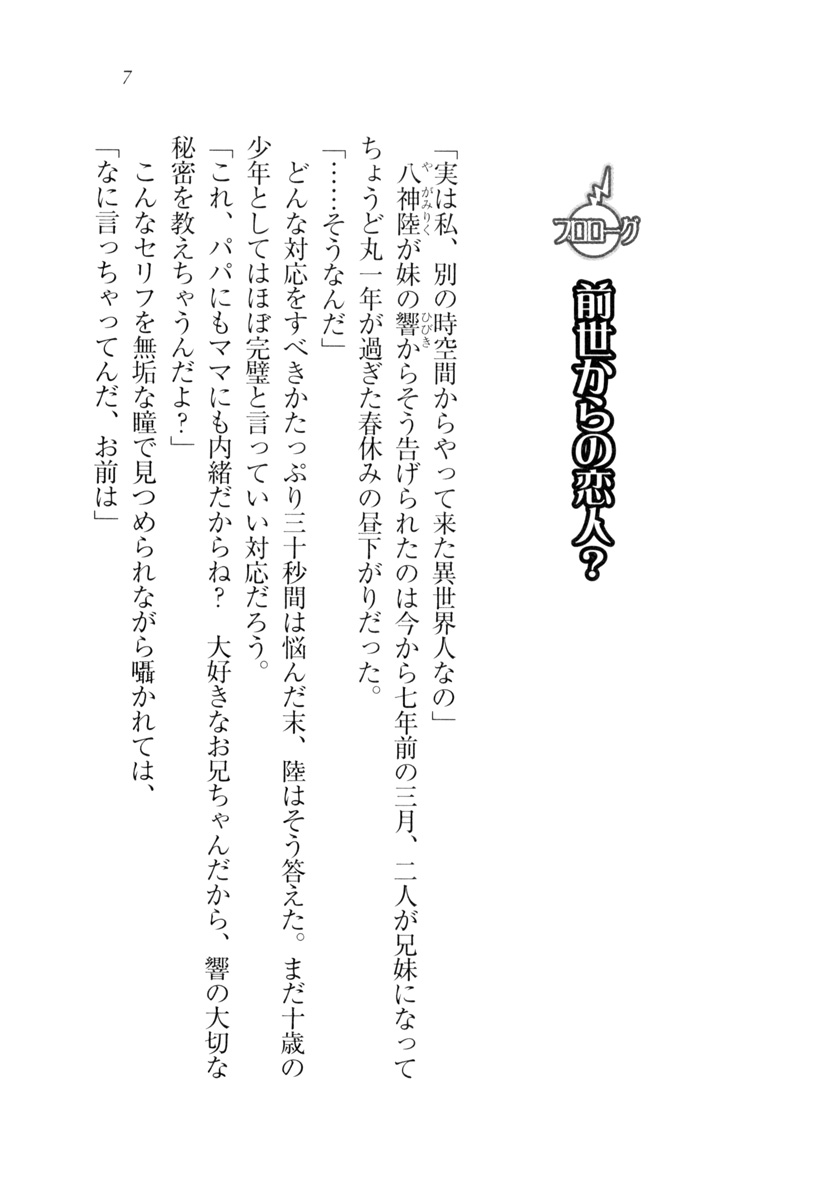 7
プロローグ
前世からの恋人?
「実は私、別の時空間からやって来た異世界人なの」
八神陸が妹の響からそう告げられたのは今から七年前の三月、二人が兄妹になって
ちょうど丸一年が過ぎた春休みの昼下がりだった。
「……そうなんだ」
どんな対応をすべきかたっぷり三十秒間は悩んだ末、陸はそう答えた。まだ十歳の
少年としてはほぼ完璧と言っていい対応だろう。
「これ、パパにもママにも内緒だからね? 大好きなお兄ちゃんだから、響の大切な
秘密を教えちゃうんだよ?」
こんなセリフを無垢な瞳で見つめられながら囁かれては、
「なに言っちゃってんだ、お前は」